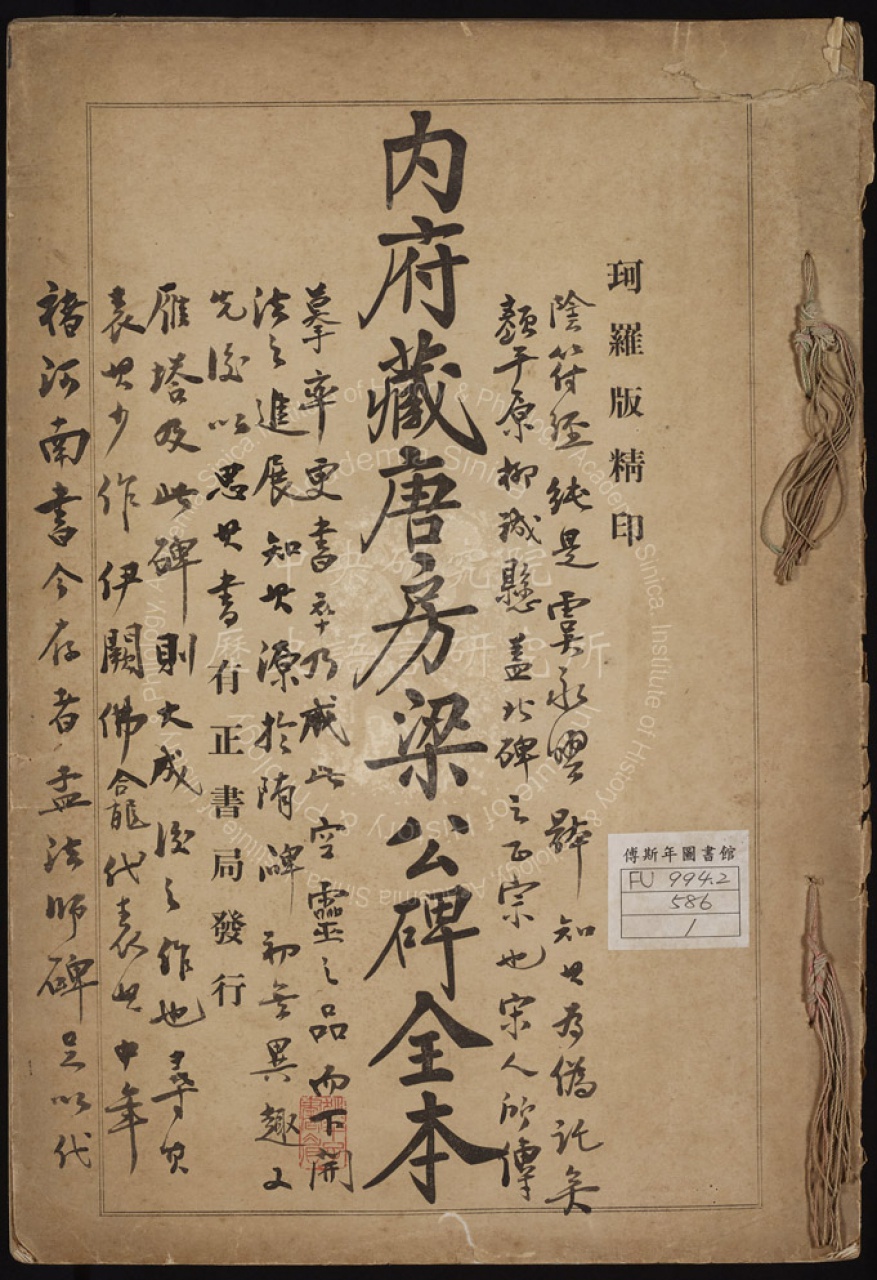 珂羅版精印
內府藏唐房梁公碑全本
有正書局發行
褚河南書今存者孟法師碑足以代
表其少作伊闕佛龕代表其中年
雁塔及此碑則大成後之作也尋其
先後以思其書
法之進展知其源於隋碑初無異趣又
摹率更書卒乃成此空靈之品而下開
顏平原柳誠懸蓋此碑之正宗也宋人所傳
陰符經純是虞永興體知其為偽託矣
傅斯年圖書館
FU 994.2
586
1